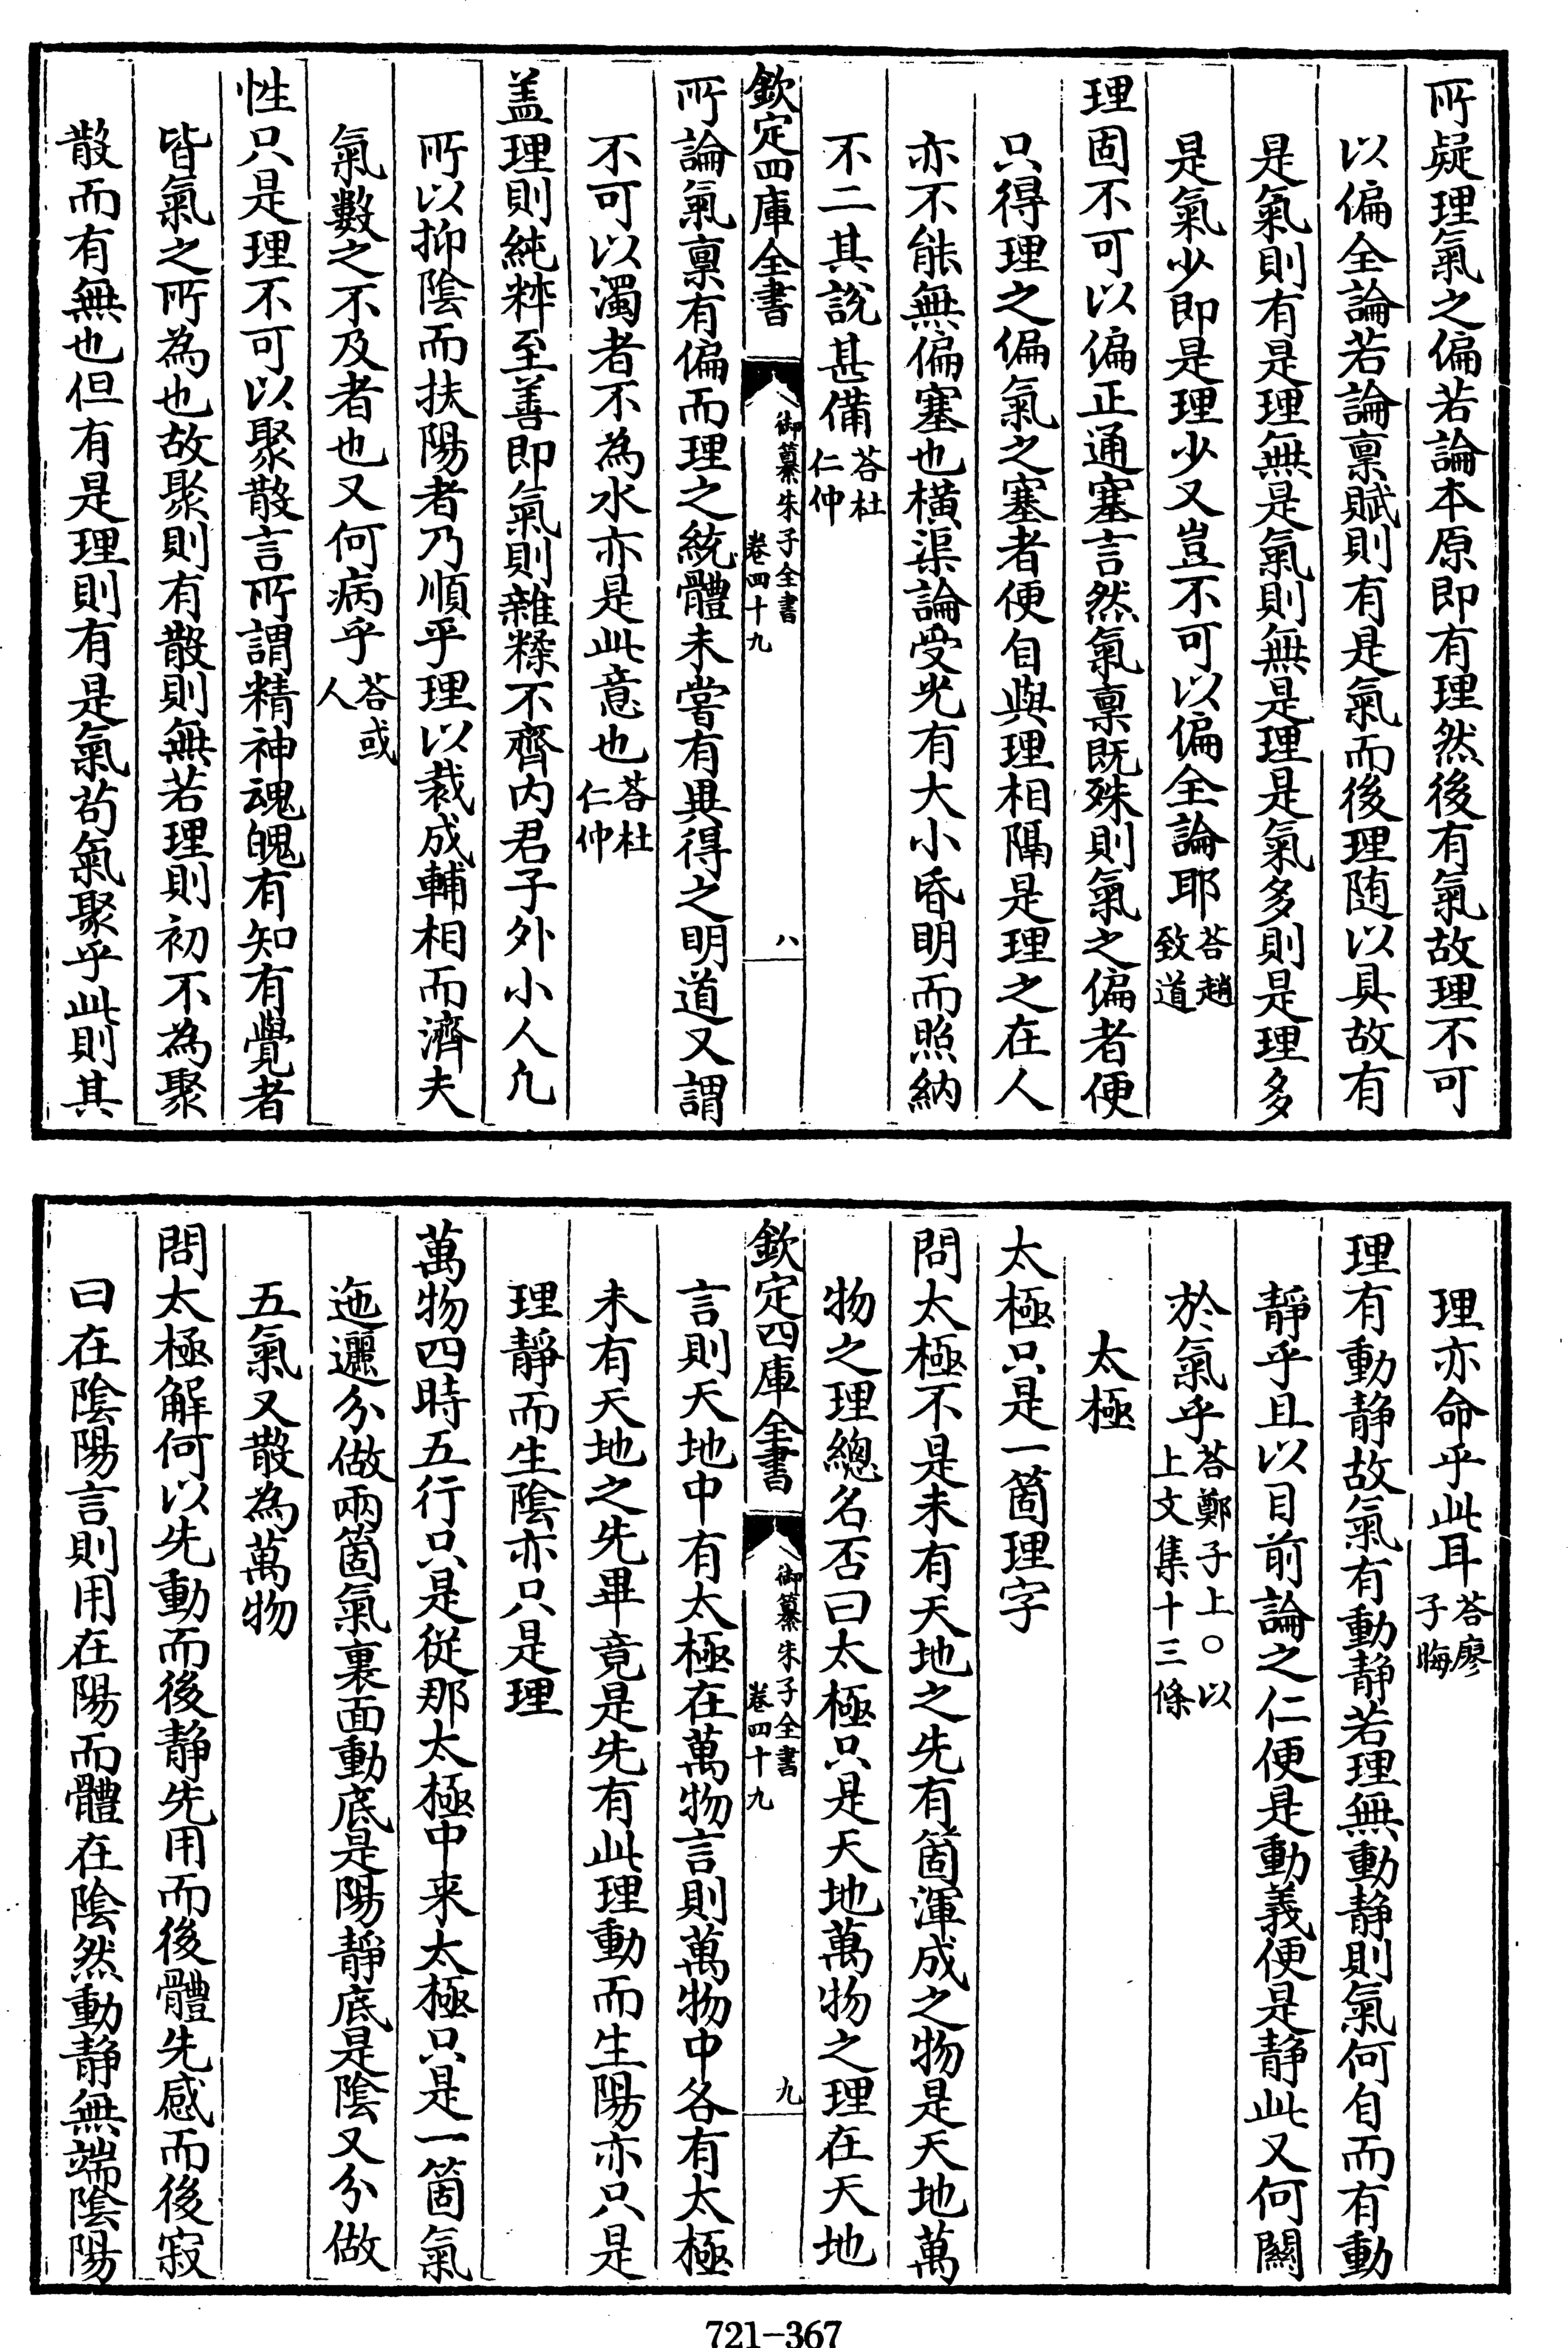 所疑理氣之偏若論本原即有理然後有氣故理不可
以偏全論若論稟賦則有是氣而後理随以具故有
是氣則有是理無是氣則無是理是氣多則是理多
是氣少即是理少又豈不可以偏全論耶荅趙致道
理固不可以偏正通塞言然氣稟既殊則氣之偏者便
只得理之偏氣之塞者便自與理相隔是理之在人
亦不能無偏塞也橫渠論受光有大小昏明而照納
不二其說甚備荅杜仁仲
欽定四庫全書 御纂朱子全書 卷四十九 八
所論氣稟有偏而理之統體未嘗有異得之明道又謂
不可以濁者不為水亦是此意也荅杜仁仲
盖理則純粹至善即氣則雜糅不齊内君子外小人凡
所以抑陰而扶陽者乃順乎理以裁成輔相而濟夫
氣數之不及者也又何病乎荅或人
性只是理不可以聚散言所謂精神魂魄有知有覺者
皆氣之所為也故聚則有散則無若理則初不為聚
散而有無也但有是理則有是氣苟氣聚乎此則其
理亦命乎此耳荅廖子晦
理有動静故氣有動静若理無動静則氣何自而有動
靜乎且以目前論之仁便是動義便是静此又何關
於氣乎荅鄭子上○以上文集十三條
太極
太極只是一箇理字
問太極不是未有天地之先有箇渾成之物是天地萬
物之理總名否曰太極只是天地萬物之理在天地
欽定四庫全書 御纂朱子全書 卷四十九 九
言則天地中有太極在萬物言則萬物中各有太極
未有天地之先畢竟是先有此理動而生陽亦只是
理靜而生陰亦只是理
萬物四時五行只是從那太極中来太極只是一箇氣
迤邐分做兩箇氣裏面動底是陽靜底是陰又分做
五氣又散為萬物
問太極解何以先動而後静先用而後體先感而後寂
曰在陰陽言則用在陽而體在陰然動静無端陰陽
721-367